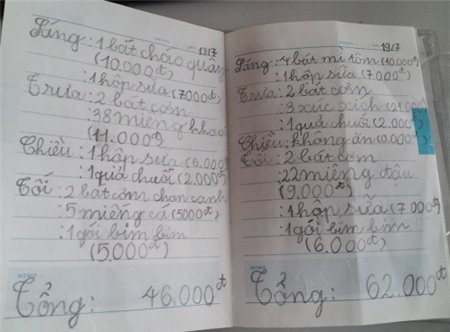 Sáng: 1 bát cháo quẩy
(10.000đ)
: 1 hộp sữa (7000đ)
Trưa: 2 bát cơm
38 miếng khoai
(11.000đ)
Chiều: 1 hộp sữa (6.000đ)
: 1 quả chuối (2.000đ)
Tối: 2 bát cơm chan canh
5 miếng cá (5000đ)
: 1 gói bim bim
(5.000đ)
Tổng: 46.000đ
19/7
Sáng: 1 bát mì tôm (10.000đ)
: 1 hộp sữa (7000đ)
Trưa: 2 bát cơm
3 xúc xích (21.000đ)
: 1 quả chuối (2.000đ)
Chiều: không ăn (0.000đ)
Tối: 2 bát cơm
: 22 miếng đậu
(9.000đ)
: 1 hộp sữa (7.000đ)
: 1 gói bim bim
(6.000đ)
Tổng: 62.000đ